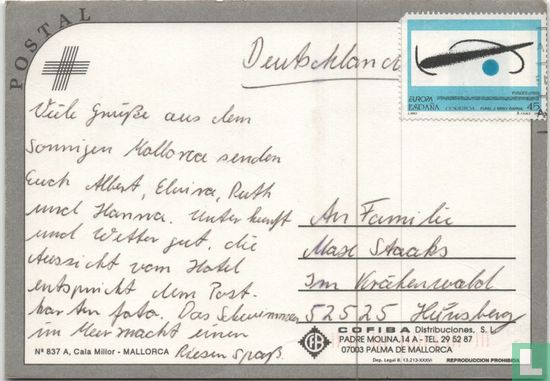 POSTAL
Deutschland
EUROPA
ESPAÑA CORREOS 45
Viele Grüße aus dem
Sonnigen Mallorca senden
Euch Albert, Elvira, Ruth
und Hanna. Unterkunft
und Wetter gut, die
Aussicht vom Hotel
entspricht dem Post-
karten foto. Das Schwimmen
im Meer macht einen
Riesen Spaß.
An Familie
Max Staaks
Im Krähenwald
52525 Hünsberg
COFIBA Distribuciones, S. L.
PADRE MOLINA, 14 A - TEL. 29 52 87
07003 PALMA DE MALLORCA
Nº 837 A, Cala Millor - MALLORCA
Dep. Legal B. 13.213-XXXVI
REPRODUCCION PROHIBIDA
catawiki